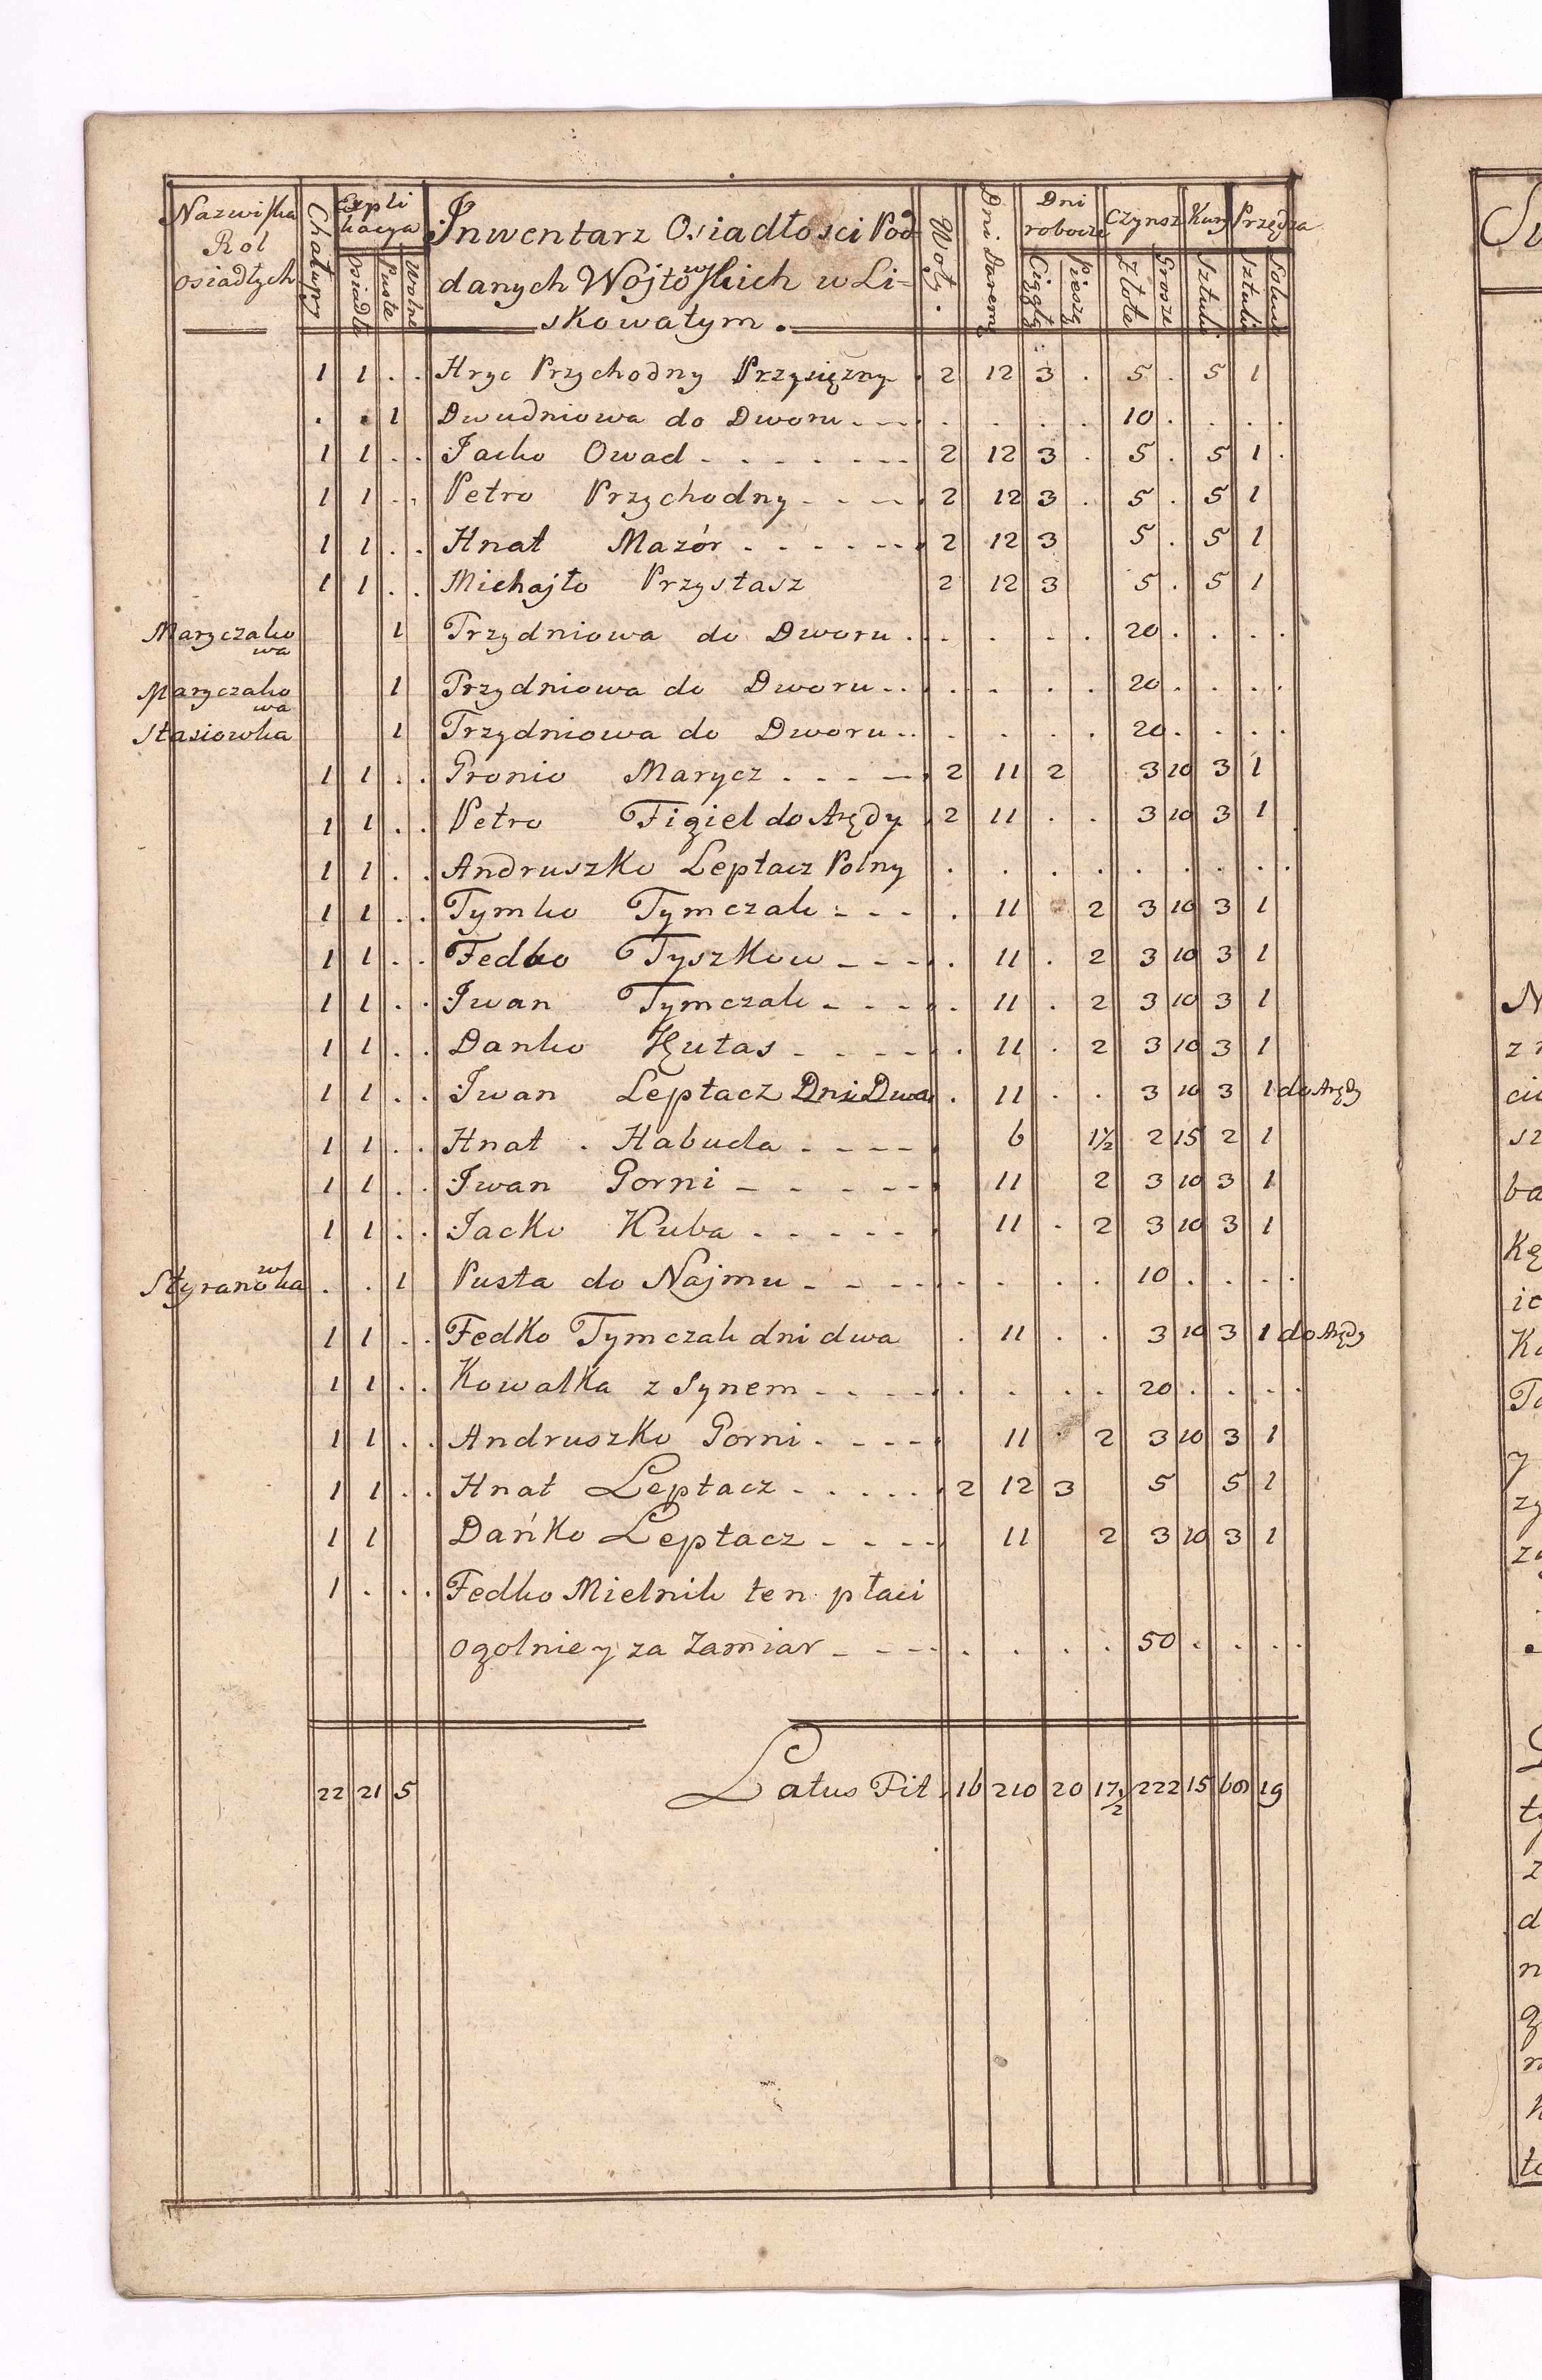 Nazwiska Rol osiadłych | Chałupy | Explikacya: Osiadłe | Puste | Wolne | Inwentarz Osiadłosci Pod- | Woły. | Dni Darem | Dni robocze: Ciągłe | Piesze | Czynsz: Złote | Grosze | Kury: Sztuki | Przędza: Sztuki
danych Wojtowskich w Li-
skowatym.
1 1 . . Hryc Przychodny Przysięzny . 2 12 3 . 5 . 5 1
. . 1 Dwudniowa do Dworu . . . . . . 10 . . . .
1 1 . . Jacko Owad . . . . 2 12 3 . 5 . 5 1 .
1 1 . . Petro Przychodny . . . . 2 12 3 . 5 . 5 1
1 1 . . Hnat Mazór . . . . 2 12 3 5 . 5 1
1 1 . . Michajło Przystasz 2 12 3 5 . 5 1
Maryczakowa 1 Trzydniowa do Dworu . . . . . 20 . . . .
Maryczakowa 1 Trzydniowa do Dworu . . . . . 20 . . . .
Stasiowka 1 Trzydniowa do Dworu . . . . . 20 . . . .
1 1 . . Pronio Marycz . . . . 2 11 2 3 10 3 1
1 1 . . Petro Figiel do Arędy . 2 11 . . 3 10 3 1
1 1 . . Andruszko Leptacz Polny . . . . . . . . .
1 1 . . Tymko Tymczak . . . . 11 2 3 10 3 1
1 1 . . Fedko Tyszkow . . . . 11 . 2 3 10 3 1
1 1 . . Iwan Tymczak . . . . 11 . 2 3 10 3 1
1 1 . . Danko Hutas . . . . 11 . 2 3 10 3 1
1 1 . . Iwan Leptacz Dni Dwa . 11 . . 3 10 3 1 do Arędy
1 1 . . Hnat . Habuda . . . . 6 1½ 2 15 2 1
1 1 . . Iwan Gorni . . . . 11 2 3 10 3 1
1 1 . . Jacko Kuba . . . . 11 . 2 3 10 3 1
Styranowka . . 1 Pusta do Najmu . . . . . . 10 . . . .
1 1 . . Fedko Tymczak dni dwa . 11 . . 3 10 3 1 do Arędy
1 1 . . Kowalka z Synem . . . . . . 20 . . . .
1 1 . . Andruszko Gorni . . . . 11 . 2 3 10 3 1
1 1 . . Hnat Leptacz . . . . 2 12 3 5 5 1
1 1 Dańko Leptacz . . . . 11 2 3 10 3 1
1 . . . Fedko Mielnik ten płaci
ogolnie y za Zamiar . . . . . . 50 . . . .
22 21 5 Latus Fit. 16 210 20 17½ 222 15 60 19